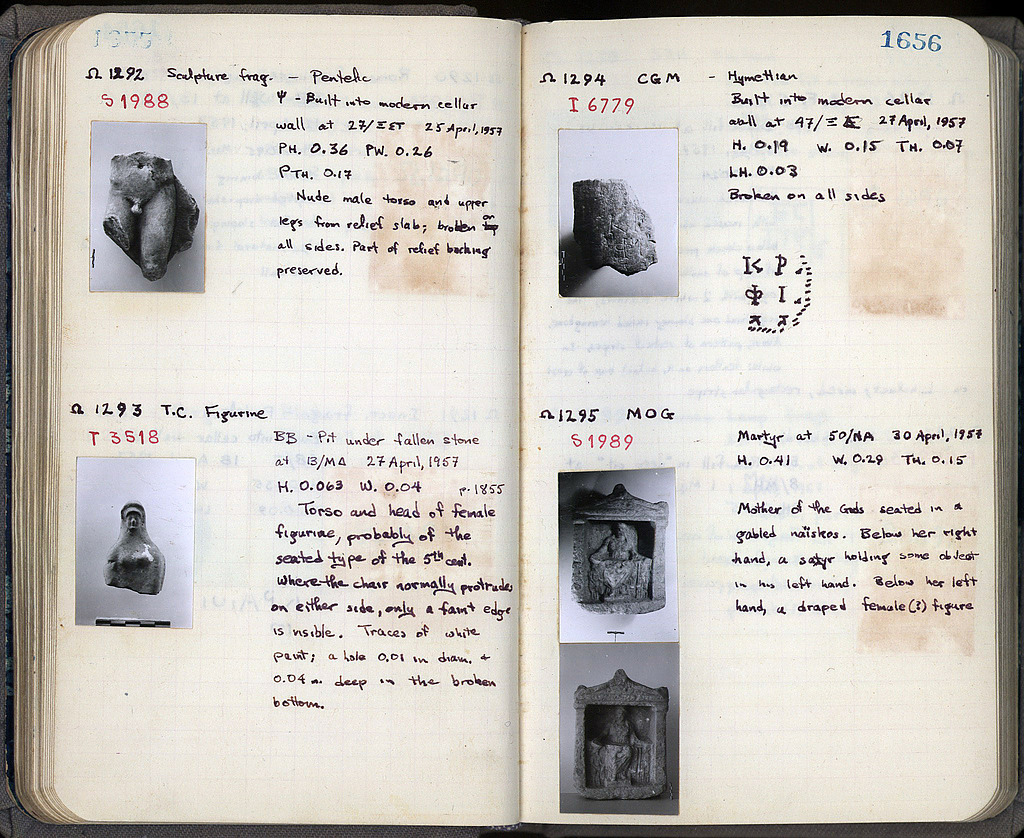 1655
Ω 1292 Sculpture frag. - Pentelic
S 1988
Ψ - Built into modern cellar
wall at 27/ΞΣΤ 25 April, 1957
PH. 0.36 PW. 0.26
PTH. 0.17
Nude male torso and upper
legs from relief slab; broken on
all sides. Part of relief backing
preserved.
Ω 1293 T.C. Figurine
T 3518
BB - Pit under fallen stone
at 13/ΜΔ 27 April, 1957
H. 0.063 W. 0.04 p. 1855
Torso and head of female
figurine, probably of the
seated type of the 5th cent.
Where the chair normally protrudes
on either side, only a faint edge
is visible. Traces of white
paint; a hole 0.01 in diam. +
0.04 m. deep in the broken
bottom.
1656
Ω 1294 CGM - Hymettian
I 6779
Built into modern cellar
wall at 47/Ξ 27 April, 1957
H. 0.19 W. 0.15 TH. 0.07
LH. 0.03
Broken on all sides
Κ Ρ
Φ Ι
Ω 1295 MOG
S 1989
Martyr at 50/ΝΑ 30 April, 1957
H. 0.41 W. 0.29 TH. 0.15
Mother of the Gods seated in a
gabled naïskos. Below her right
hand, a satyr holding some object
in his left hand. Below her left
hand, a draped female(?) figure